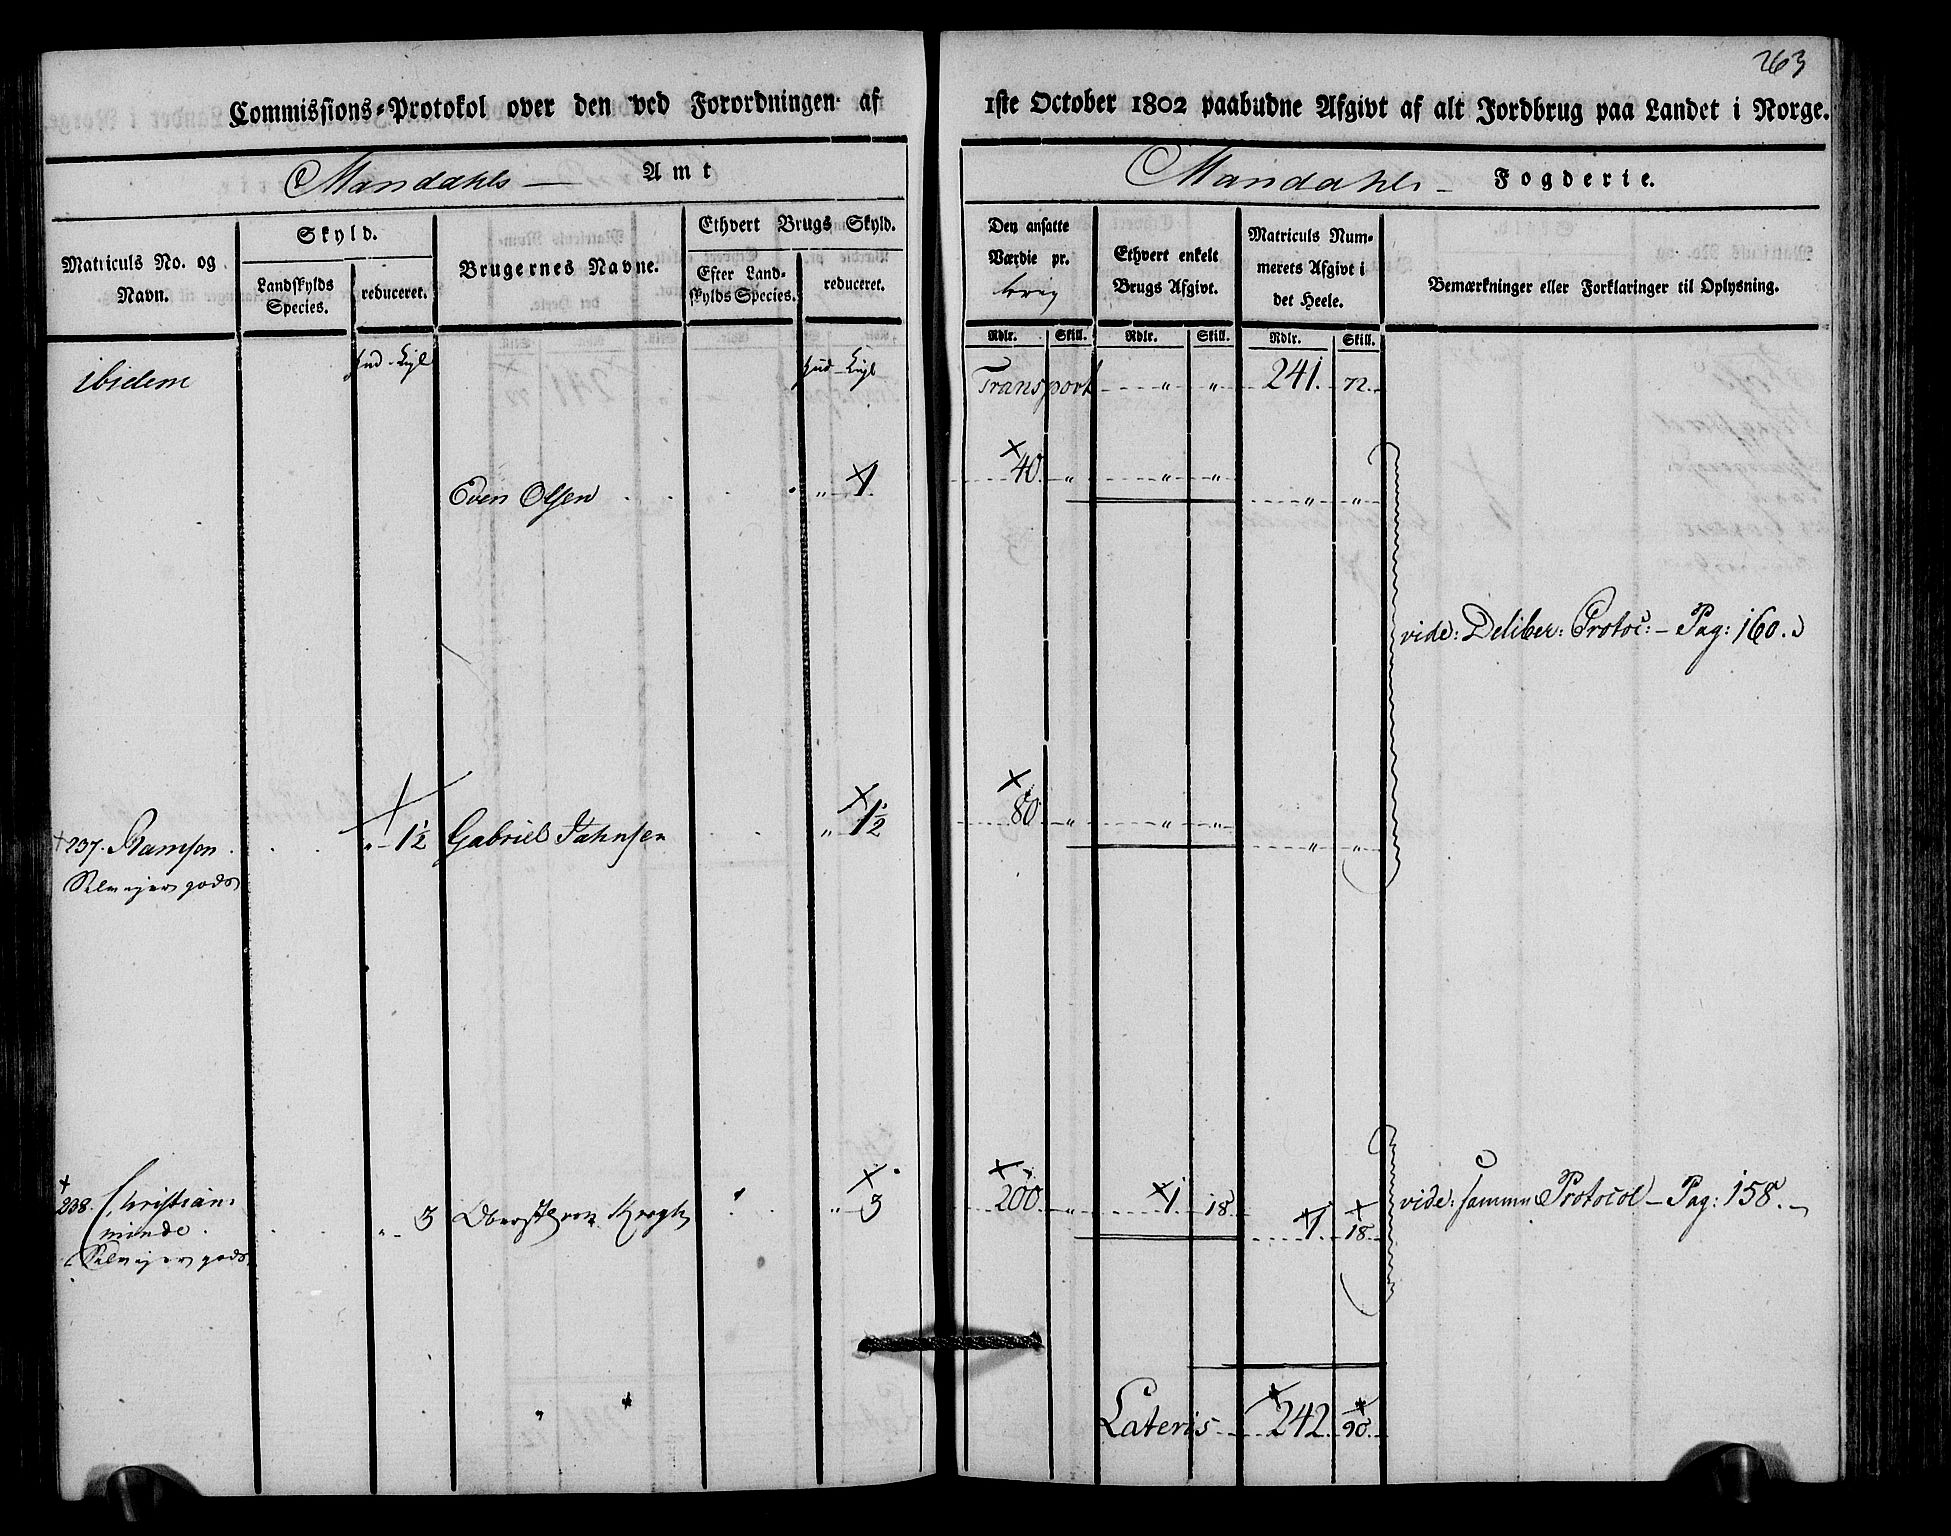 263
Commissions-Protokol over den ved Forordningen af 1ste October 1802 paabudne Afgivt af alt Jordbrug paa Landet i Norge.
Mandahls — Amt
Mandahls - Fogderie.
Matriculs No. og Navn.
Skyld.
Landskylds Species.
reduceret.
Brugernes Navne.
Ethvert Brugs Skyld.
Efter Landskylds Species.
reduceret.
Den ansatte Værdie pr.
Ethvert enkelt Brugs Afgivt.
Matriculs Nummerets Afgivt i det Heele.
Bemærkninger eller Forklaringer til Oplysning.
Rdlr. Skill. Rdlr. Skill. Rdlr. Skill.
ibidem
Transport " " 241. 72.
Even Olsen " 1 40. " " " " "
vide: Deliber: Protoc: - Pag: 160.
237. Ramsøn " 1½ Gabriel Jahnsen " 1½ 80 " " " " "
Selveyer gods
238. Christian: " 3 Oberst von Krogh " 3 200 " 1. 18. 1 18. vide: samme Protocol - Pag: 158.
minde.
Selveyer gods
Lateris 242. 90.